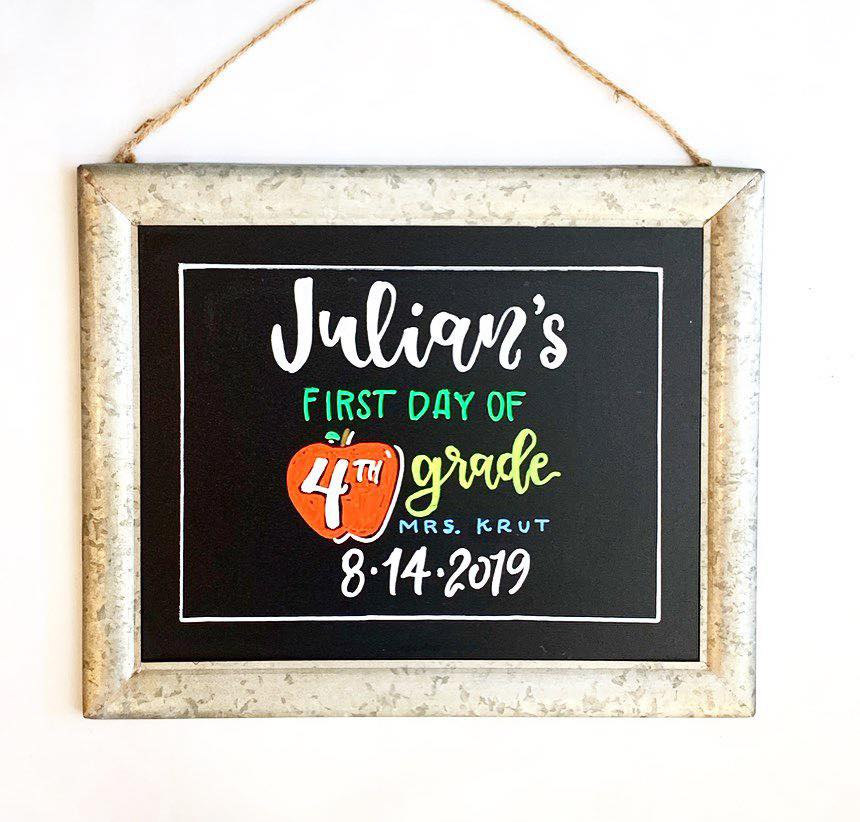 Julian's
FIRST DAY OF
4TH grade
MRS. KRUT
8·14·2019